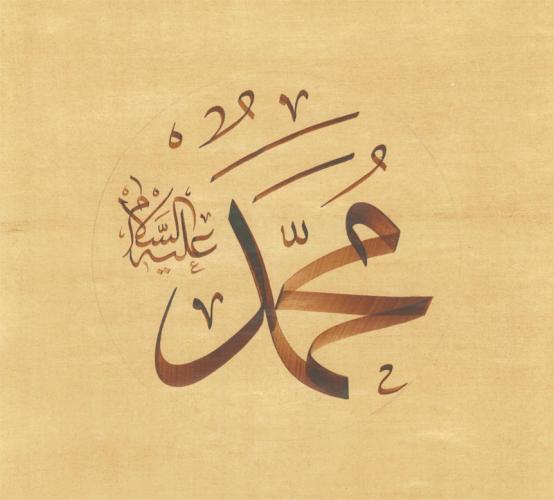 مُحَمَّدٌ
عليه السَّلام